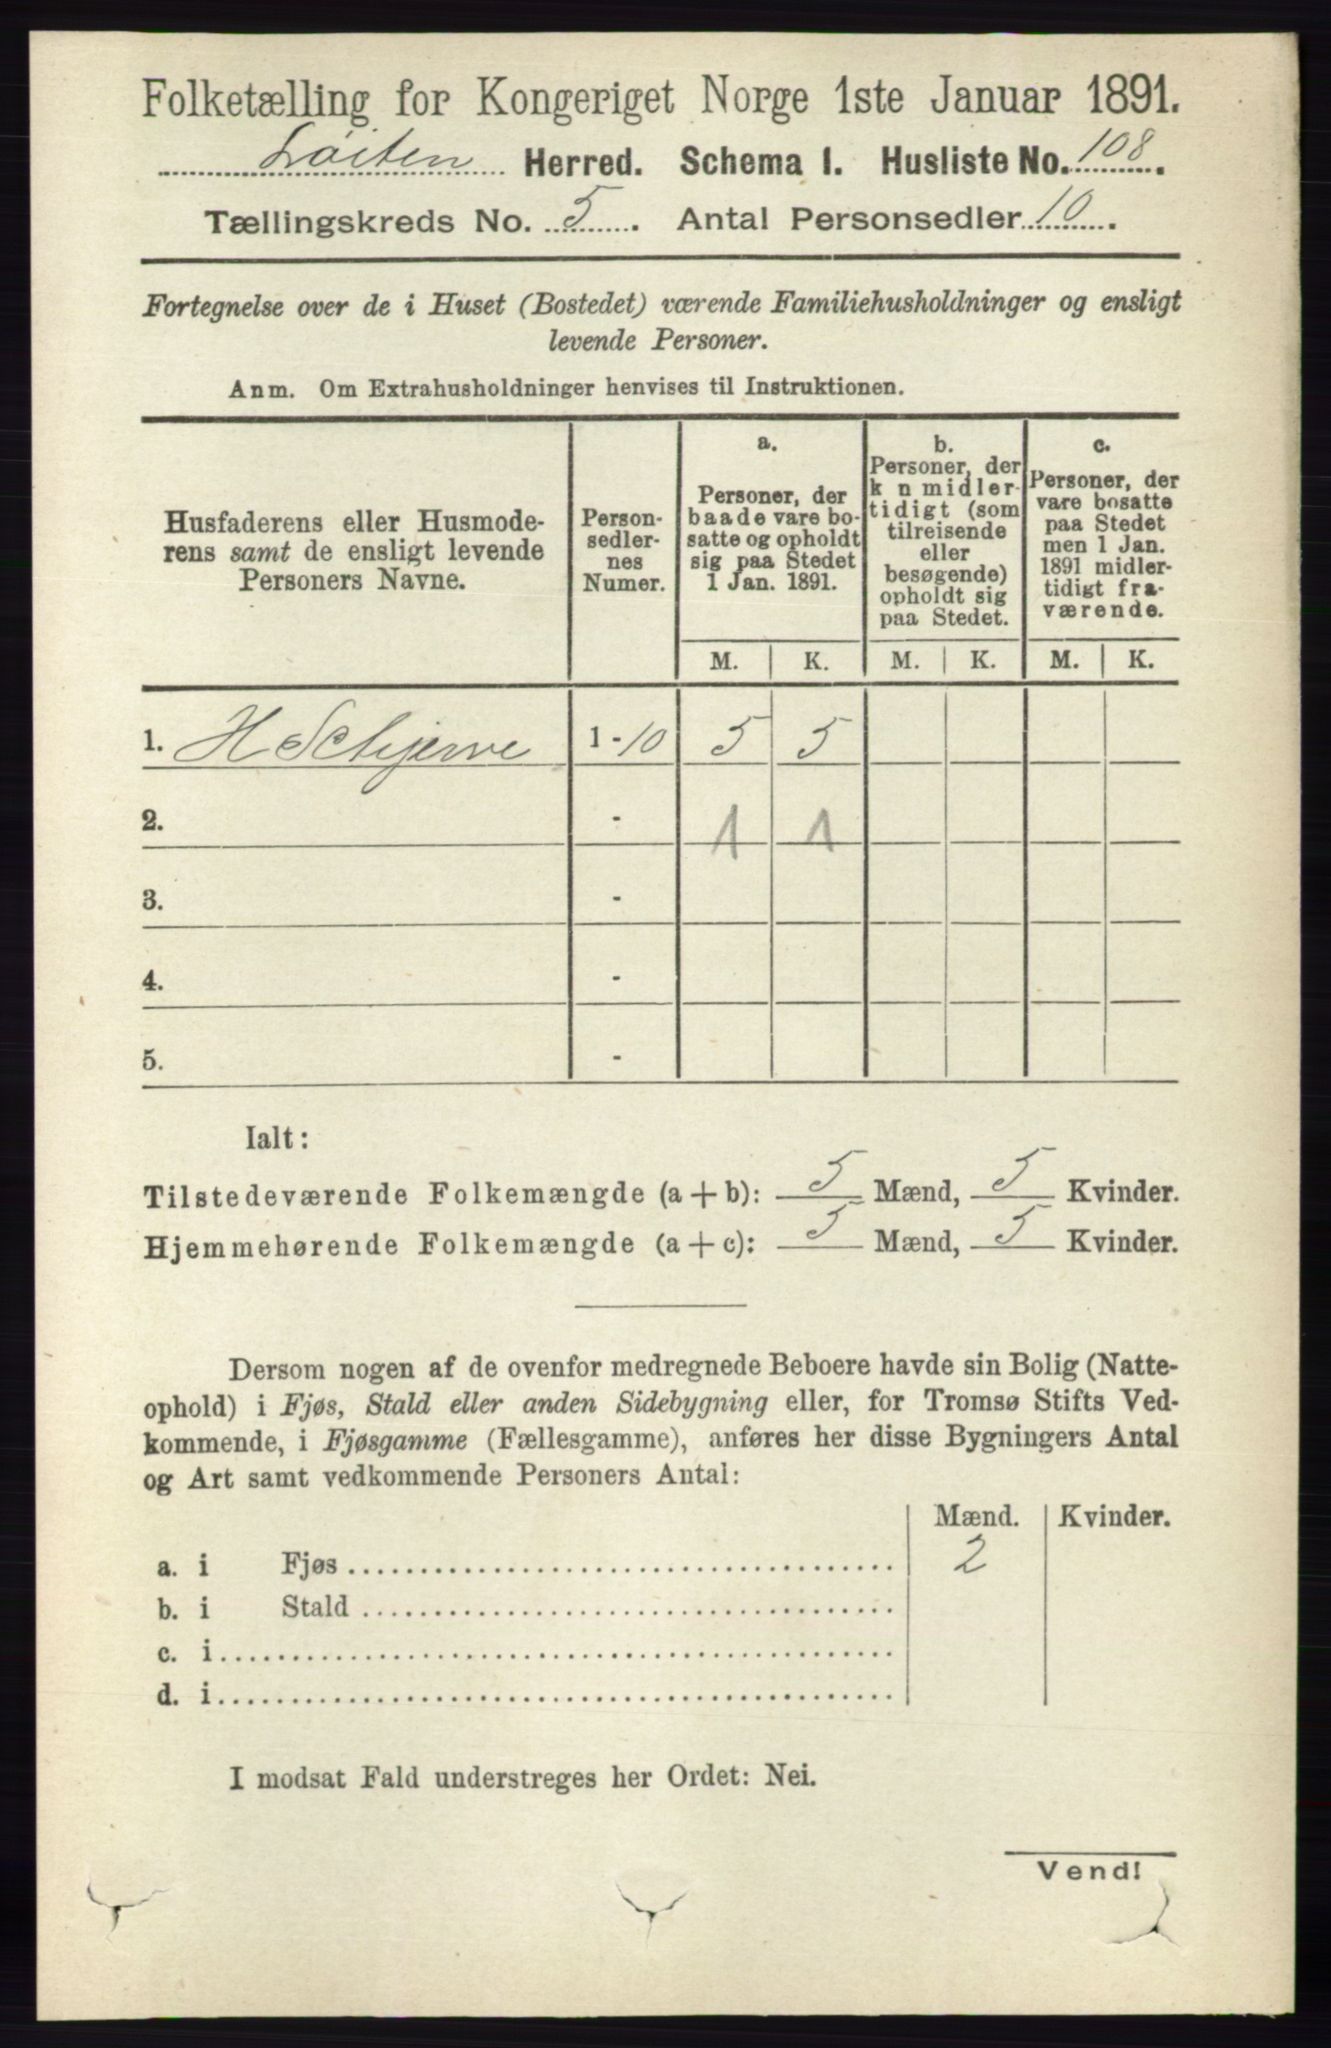 Folketælling for Kongeriget Norge 1ste Januar 1891.
Løiten Herred. Schema 1. Husliste No. 108.
Tællingskreds No. 5. Antal Personsedler 10.
Fortegnelse over de i Huset (Bostedet) værende Familiehusholdninger og ensligt
levende Personer.
Anm. Om Extrahusholdninger henvises til Instruktionen.
Husfaderens eller Husmode-
rens samt de ensligt levende
Personers Navne.
Person-
sedler-
nes
Numer.
a.
Personer, der
baade vare bo-
satte og opholdt
sig paa Stedet
1 Jan. 1891.
b.
Personer, der
k n midler-
tidigt (som
tilreisende
eller
besøgende)
opholdt sig
paa Stedet.
c.
Personer, der
vare bosatte
paa Stedet
men 1 Jan.
1891 midler-
tidigt fra-
værende.
M. K. M. K. M. K.
1. H Schjerve 1-10 5 5
2. - 1 1
3. -
4. -
5. -
Ialt:
Tilstedeværende Folkemængde (a + b): 5 Mænd, 5 Kvinder.
Hjemmehørende Folkemængde (a + c): 5 Mænd, 5 Kvinder.
Dersom nogen af de ovenfor medregnede Beboere havde sin Bolig (Natte-
ophold) i Fjøs, Stald eller anden Sidebygning eller, for Tromsø Stifts Ved-
kommende, i Fjøsgamme (Fællesgamme), anføres her disse Bygningers Antal
og Art samt vedkommende Personers Antal:
Mænd. Kvinder.
a. i Fjøs 2
b. i Stald
c. i
d. i
I modsat Fald understreges her Ordet: Nei.
Vend!